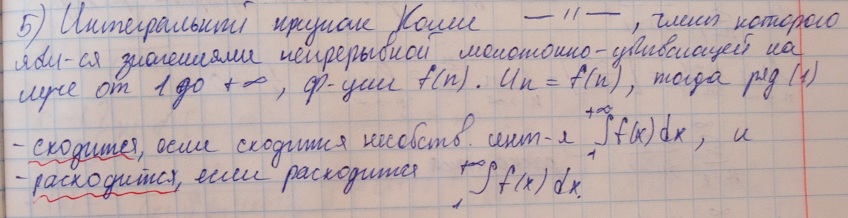 5) Интегральный признак Коши —"—, члены которого
явл-ся значениями непрерывной монотонно-убывающей на
луче от 1 до +∞, ф-ции f(n). Un = f(n), тогда ряд (1)
- сходится, если сходится несобств. инт-л ∫₁^{+∞} f(x) dx, и
- расходится, если расходится ∫₁^{+∞} f(x) dx.